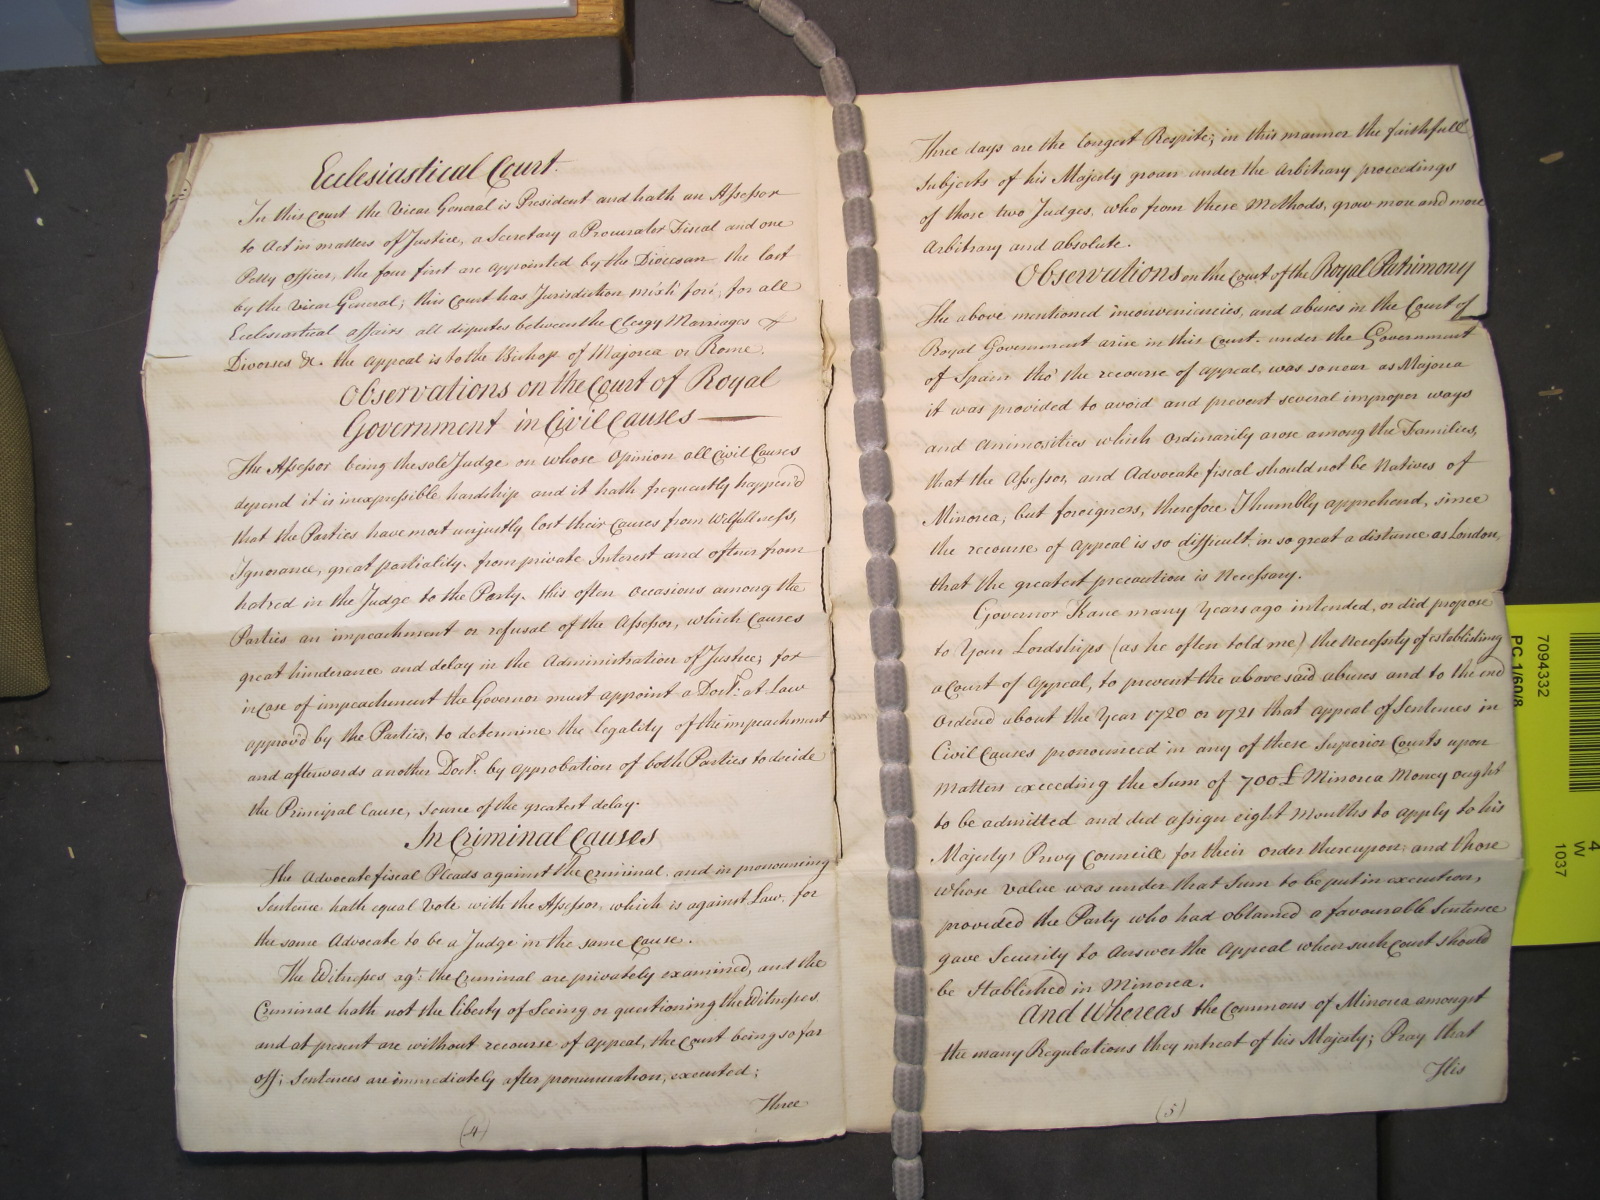 Ecclesiastical Court.
In this Court the Vicar General is President and hath an Assessor
to Act in matters of Justice, a Secretary a Procurator Fiscal and one
Petty officer, the four first are appointed by the Diocesan the last
by the Vicar General; this Court has Jurisdiction mixti fori, for all
Ecclesiastical affairs all disputes between the Clergy Marriages
Divorses &c. the appeal is to the Bishop of Majorca or Rome.
Observations on the Court of Royal
Government in Civil Causes
The Assessor being the sole Judge on whose Opinion all Civil Causes
depend it is inexpressible hardship and it hath frequently happend
that the Parties have most unjustly lost their Causes from Wilfullness,
Ignorance, great partiality, from private Interest and oftner from
hatred in the Judge to the Party. this often occasions among the
Parties an impeachment or refusal of the Assessor, which Causes
great hinderance and delay in the Administration of Justice; for
in case of impeachment the Governor must appoint a Doct.r at Law
approvd by the Parties, to determine the legality of the impeachment
and afterwards another Doct.r by approbation of both Parties to decide
the Principal Cause, source of the greatest delay.
In Criminal Causes
The Advocate fiscal Pleads against the Criminal, and in pronouncing
Sentence hath equal Vote with the Assessor, which is against Law, for
the same Advocate to be a Judge in the same Cause.
The Witnesses agt. the Criminal are privately examined, and the
Criminal hath not the liberty of Seeing or questioning the Witnesses,
and at present are without recourse of appeal, the Court being so far
off; Sentences are immediately after pronunciation, executed;
Three
(4)
Three days are the longest Respite; in this manner the faithfull
Subjects of his Majesty groan under the Arbitrary proceedings
of those two Judges, who from these Methods, grow more and more
Arbitrary and absolute.
Observations on the Court of the Royal Patrimony
The above mentioned inconveniencies, and abuses in the Court of
Royal Government arise in this Court. under the Government
of Spain tho' the recourse of appeal, was so near as Majorca
it was provided to avoid and prevent several improper ways
and Animosities which Ordinarily arose among the Families,
that the Assessor, and Advocate fiscal should not be Natives of
Minorca, but foreigners, therefore I humbly apprehend, since
the recourse of appeal is so difficult, in so great a distance as London,
that the greatest precaution is Necessary.
Governor Kane many Years ago intended, or did propose
to Your Lordships (as he often told me) the Necessity of establishing
a Court of Appeal, to prevent the above said abuses and to the end
Ordered about the Year 1720 or 1721 that Appeal of Sentences in
Civil Causes pronounced in any of these Superior Courts upon
Matters exceeding the Sum of 700£ Minorca Money ought
to be admitted and did assign eight Months to apply to his
Majestys Privy Councill for their Order thereupon, and those
whose value was under that Sum to be put in execution,
provided the Party who had obtained a favourable Sentence
gave Security to Answer the Appeal when such Court should
be Stablished in Minorca.
And Whereas the Commons of Minorca amongst
the many Regulations they intreat of his Majesty; Pray that
His
(5)
7094332
PC 1/60/8
4
W
1037